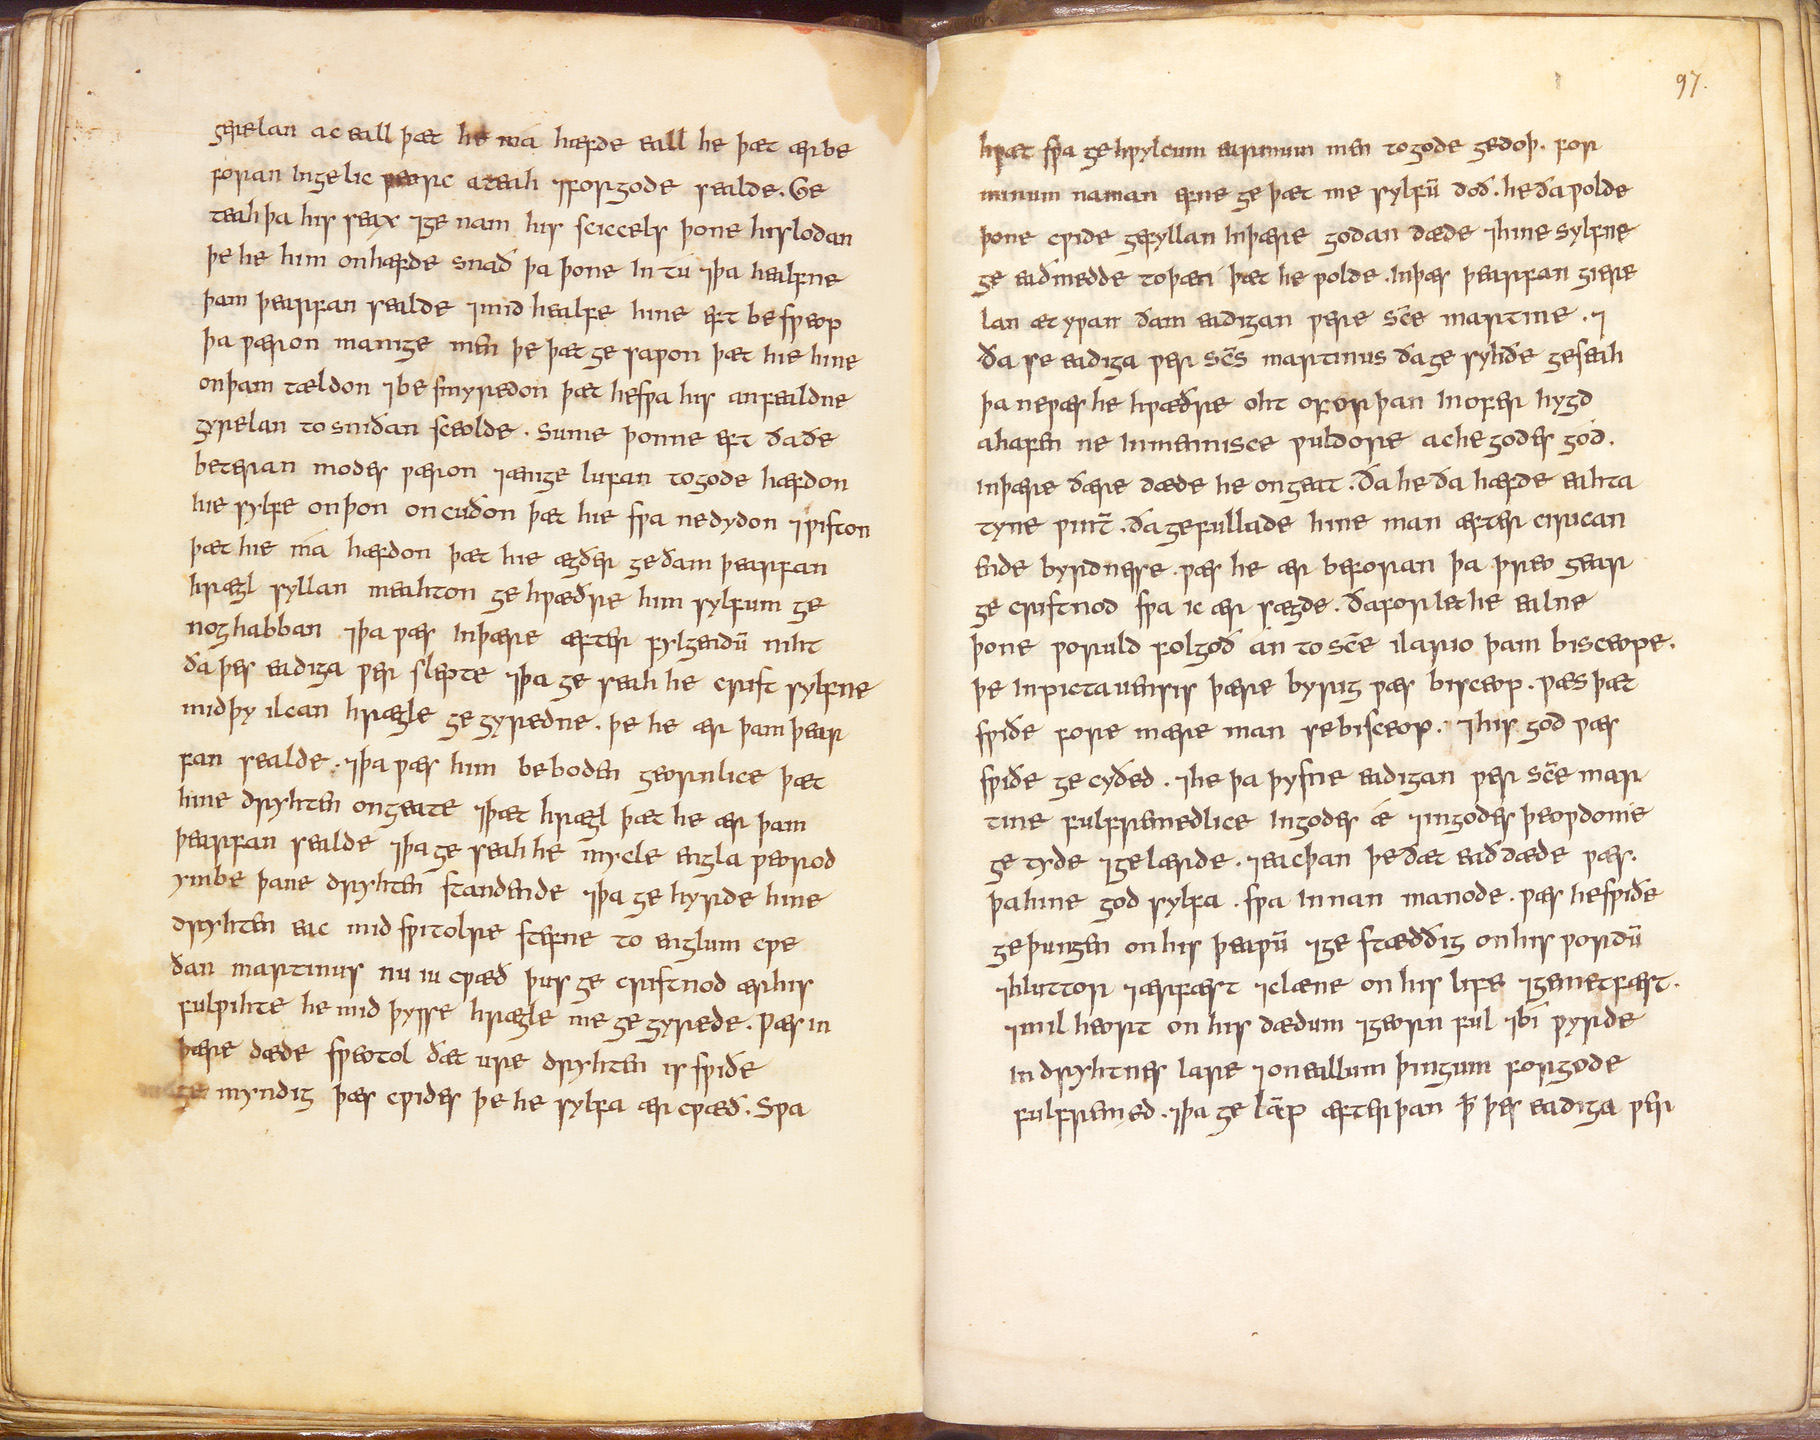 gerelan ac eall þæt he má hæfde eall he þæt ær be
foran in gelic weorc ateah ⁊ for gode sealde. Ge
teah þa his seax ⁊ ge nam his sciccels þone his lodan
þe he him on hæfde snað þa þone in tu ⁊ þa healfne
þam þearfan sealde ⁊ mid healfe hine eft be sweop
þa wæron manige men þe þæt ge sawon þæt hie hine
on þam tældon ⁊ be smyredon þæt he swa his anfealdne
gyrelan to sniðan sceolde. Sume þonne eft ða ðe
beteran modes wæron ⁊ ænige lufan to gode hæfdon
hie sylfe on þon oncuðon þæt hie swa ne dydon ⁊ wiston
þæt hie má hæfdon þæt hie ægðer ge ðam þearfan
hrægl syllan meahton ge hwæðre him sylfum ge
nog habban ⁊ þa wæs in þære æfter fylgendū niht
ða þes eadiga wer slepte ⁊ þa ge seah he crist sylfne
mid þy ilcan hrægle ge gyredne. þe he ær þam þear
fan sealde. ⁊ þa wæs him be boden geornlice þæt
hine dryhten ongeate ⁊ þæt hrægl þæt he ær þam
þearfan sealde ⁊ þa ge seah he mycle engla weorod
ymbe þane dryhten standende ⁊ þa ge hyrde hine
dryhten eac mid switolre stefne to englum cwe
ðan martinus nu iu cwæð þus ge cristnod ær his
fulwihte he mid þysse hrægle me ge gyrede. Wæs in
þære dæde sweotol ðæt ure dryhten is swiðe
ge myndig þæs cwides þe he sylfa ær cwæð. Swa
97.
hwæt swa ge hwylcum earmum men to gode gedoþ. for
minum naman efne ge þæt me sylfū doð. he ða wolde
þone cwide gefyllan in þære godan dæde ⁊ hine sylfne
ge eaðmedde to þæn þæt he wolde. in þæs þearfan giere
lan æt ywan ðam eadigan were sc̄e martine. ⁊
ða se eadiga wer sc̄s martinus ða ge syhðe geseah
þa ne wæs he hwæðre oht ofor þan in ofer hygd
ahafen ne in mennisce wuldore ac he godes gód.
in þære ðære dæde he ongeat. Ða he ða hæfde eahta
tyne wint̄. ða gefullade hine man æfter cirican
ende byrdnesse. wæs he ær beforan þa þreo gear
ge cristnod swa ic ær sægde. Ða forlet he ealne
þone woruld folgoð án to sc̄e ilario þam biscope.
þe in pictauensis þære byrig wæs biscop. Wæs þæt
swiðe fore mære man se biscop. ⁊ his god wæs
swiðe ge cyðed. ⁊ he þa þysne eadigan wer sc̄e mar
tine fulfremedlice in godes ǽ ⁊ in godes þeowdome
ge tyde ⁊ ge lærde. ⁊ eac þan þe ðæt eað dæde wæs.
þa hine god sylfa. swa innan manode. wæs he swiðe
ge þungen on his þeawū ⁊ ge stæððig on his wordū
⁊ hluttor ⁊ ærfæst ⁊ clæne on his life ⁊ gemetfæst.
⁊ mil heort on his dædum ⁊ georn ful ⁊ bi wyrde
in dryhtnes lare ⁊ on eallum þingum for gode
fulfremed. ⁊ þa ge lāp æfter þan þ̄ þes eadiga wer